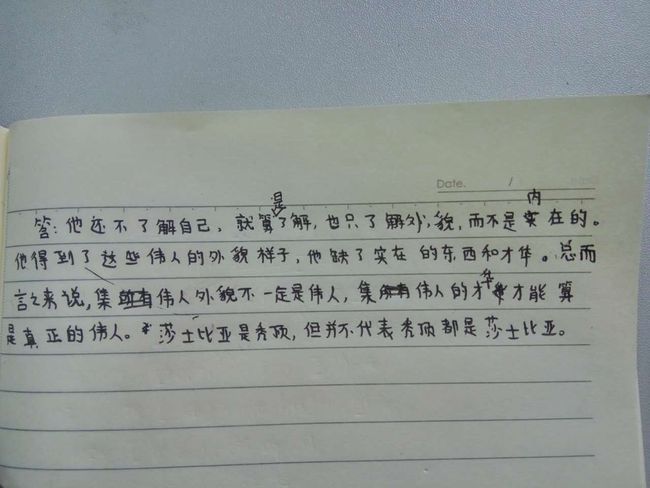 Date. /
答:他还不了解自己,就算是了解,也只了解外貌,而不是内在的。
他得到了这些伟人的外貌样子,他缺了实在的东西和才华。总而
言之来说,集伟人外貌不一定是伟人,集伟人的才华才能算
是真正的伟人。莎士比亚是秃顶,但并不代表秃顶都是莎士比亚。